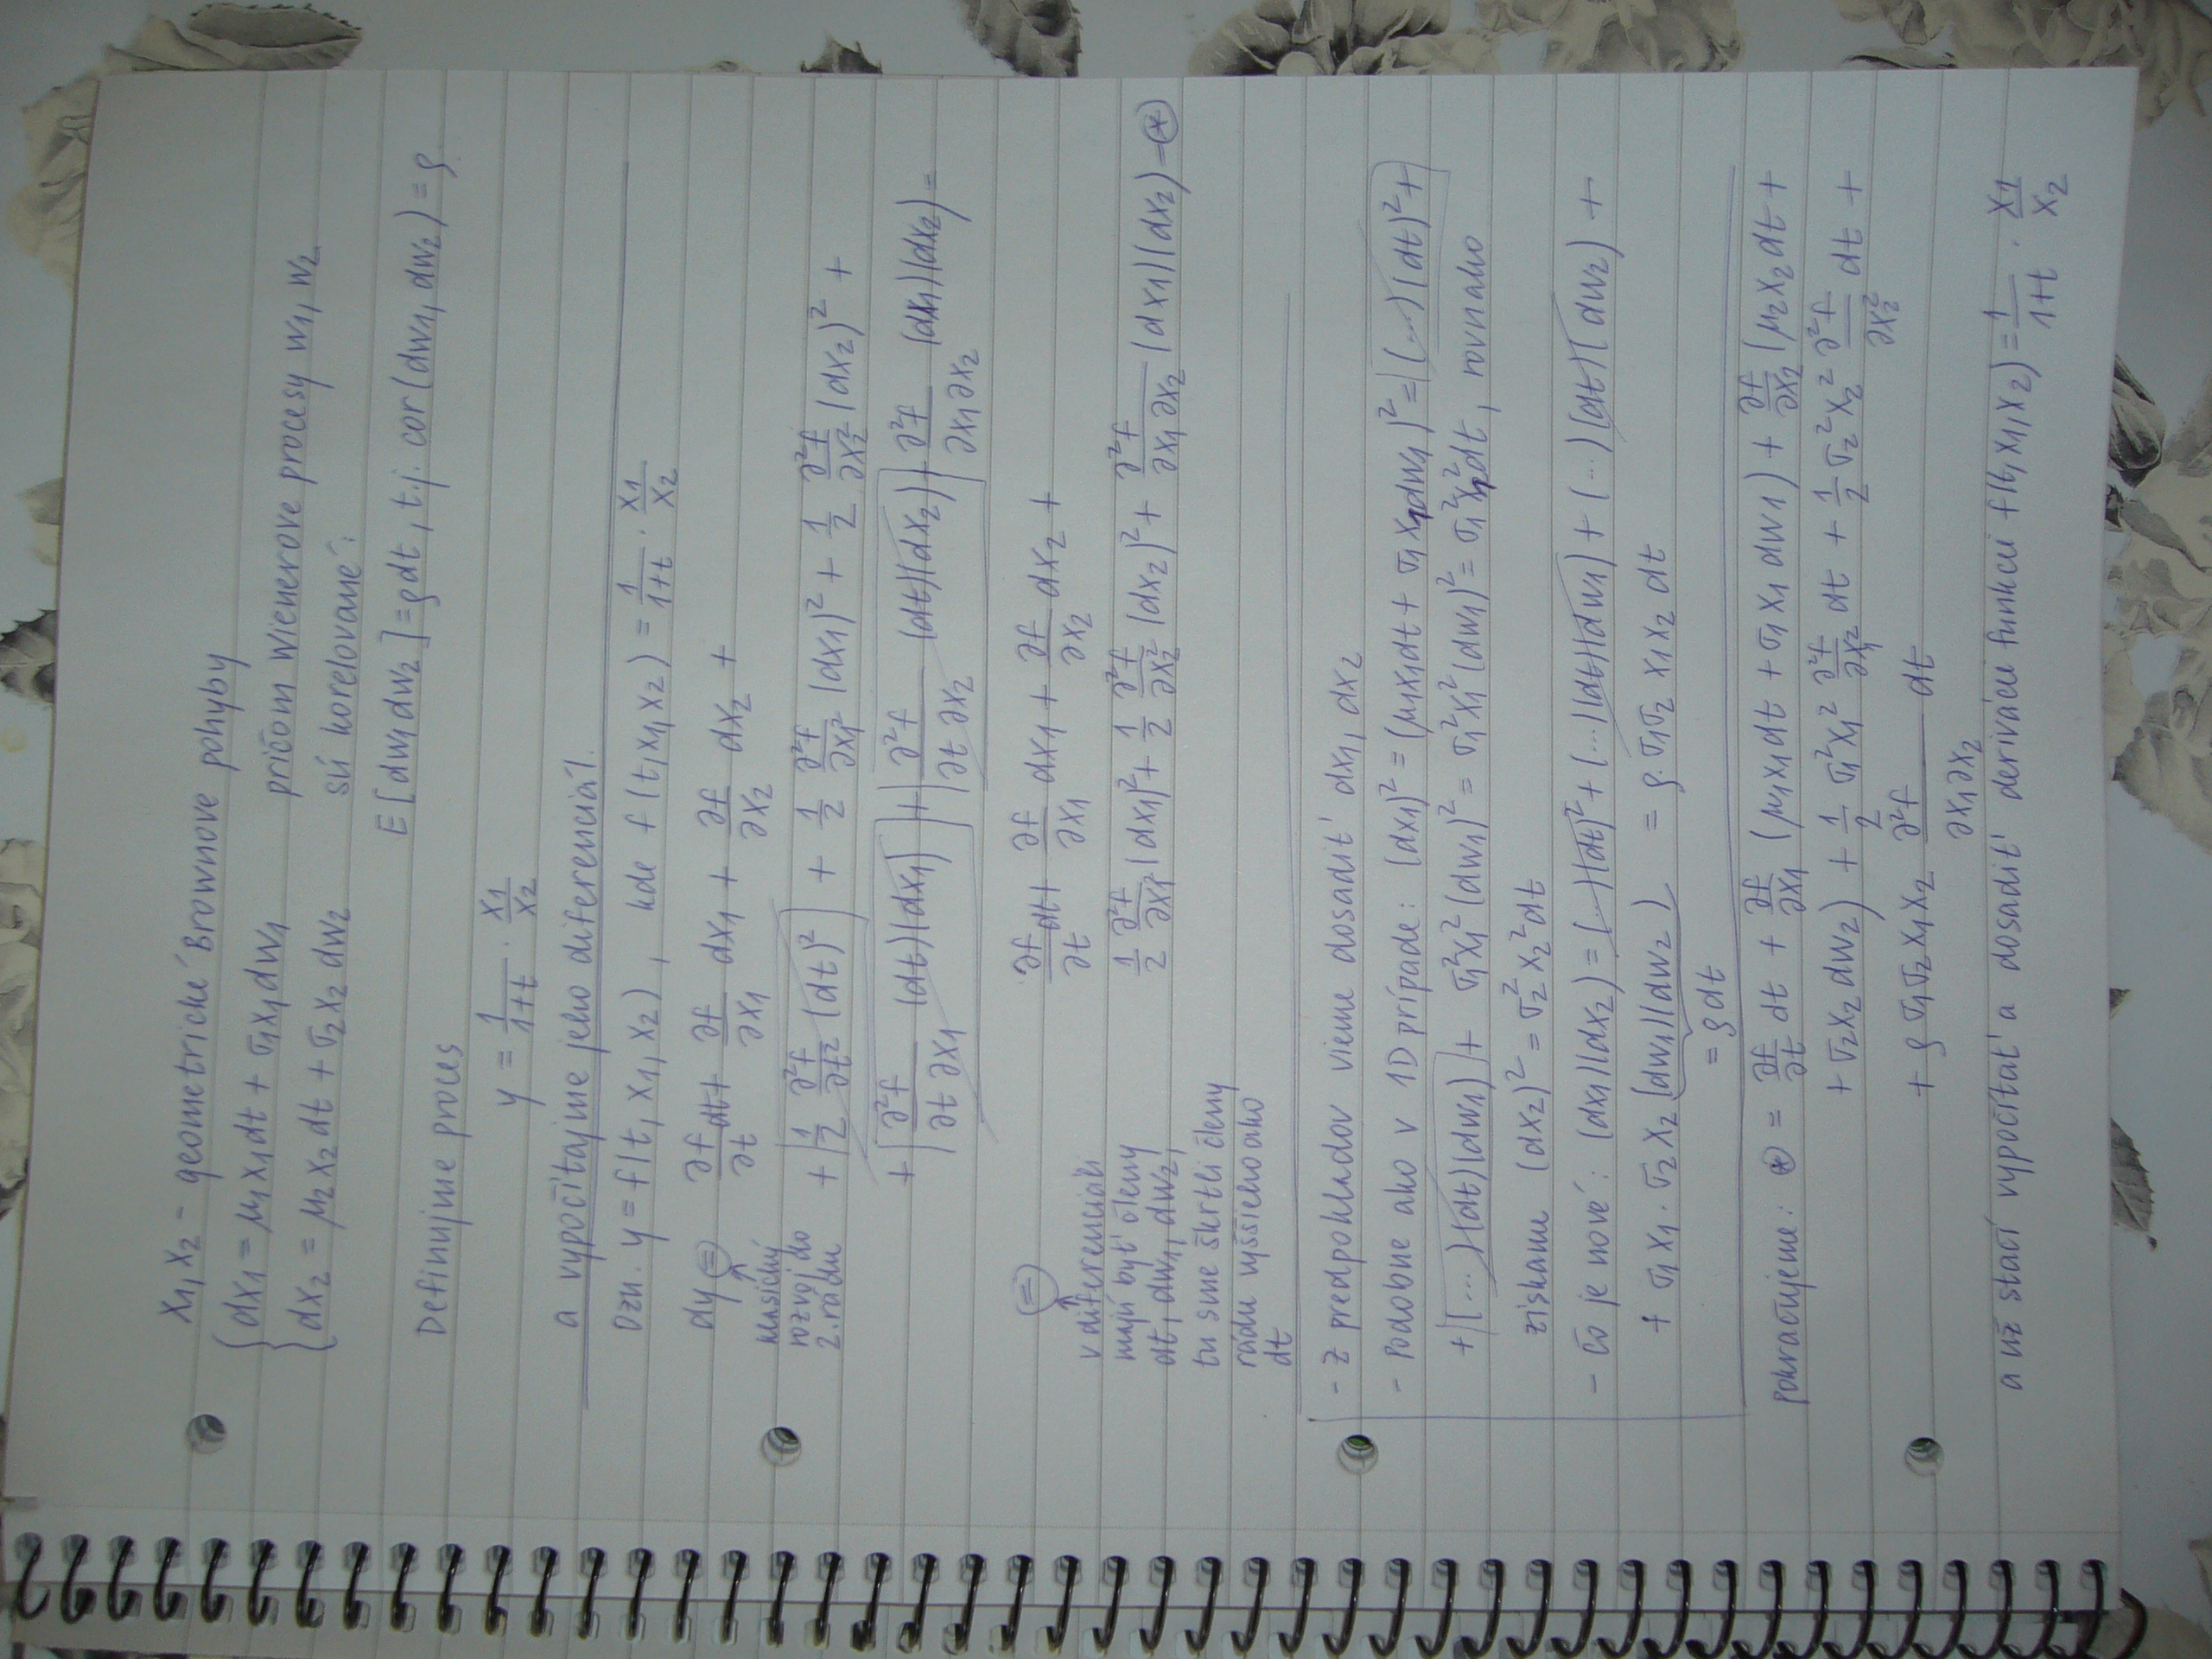 x₁, x₂ - geometrické Brownove pohyby
{ dx₁ = μ₁x₁dt + σ₁x₁dw₁ pričom Wienerove procesy w₁, w₂
{ dx₂ = μ₂x₂dt + σ₂x₂dw₂ sú korelované:
E[dw₁dw₂] = ρdt, t.j. cor(dw₁, dw₂) = ρ
Definujme proces
y = 1/(1+t) · x₁/x₂
a vypočítajme jeho diferenciál.
Ozn. y = f(t, x₁, x₂), kde f(t, x₁, x₂) = 1/(1+t) · x₁/x₂
dy (=) ∂f/∂t dt + ∂f/∂x₁ dx₁ + ∂f/∂x₂ dx₂ +
klasický rozvoj do 2. rádu
+ 1/2 ∂²f/∂t² (dt)² + 1/2 ∂²f/∂x₁² (dx₁)² + 1/2 ∂²f/∂x₂² (dx₂)² +
+ ∂²f/∂t∂x₁ (dt)(dx₁) + ∂²f/∂t∂x₂ (dt)(dx₂) + ∂²f/∂x₁∂x₂ (dx₁)(dx₂) =
(=) ∂f/∂t dt + ∂f/∂x₁ dx₁ + ∂f/∂x₂ dx₂ +
1/2 ∂²f/∂x₁² (dx₁)² + 1/2 ∂²f/∂x₂² (dx₂)² + ∂²f/∂x₁∂x₂ (dx₁)(dx₂) = (*)
v diferenciáli
majú byť členy
dt, dw₁, dw₂,
tu sme škrtli členy
rádu vyššieho ako
dt
- z predpokladov vieme dosadiť dx₁, dx₂
- Podobne ako v 1D prípade: (dx₁)² = (μ₁x₁dt + σ₁x₁dw₁)² = (...)(dt)² +
+ (...)(dt)(dw₁) + σ₁²x₁²(dw₁)² = σ₁²x₁²(dw₁)² = σ₁²x₁²dt, rovnako
získame (dx₂)² = σ₂²x₂²dt
- čo je nové: (dx₁)(dx₂) = (...)(dt)² + (...)(dt)(dw₁) + (...)(dt)(dw₂) +
+ σ₁x₁·σ₂x₂ (dw₁)(dw₂) = ρ·σ₁σ₂x₁x₂dt
= ρdt
Pokračujeme: (*) = ∂f/∂t dt + ∂f/∂x₁ (μ₁x₁dt + σ₁x₁dw₁) + ∂f/∂x₂ (μ₂x₂dt +
+ σ₂x₂dw₂) + 1/2 σ₁²x₁² ∂²f/∂x₁² dt + 1/2 σ₂²x₂² ∂²f/∂x₂² dt +
+ ρσ₁σ₂x₁x₂ ∂²f/∂x₁∂x₂ dt
a už stačí vypočítať a dosadiť derivácie funkcie f(t, x₁, x₂) = 1/(1+t) · x₁/x₂